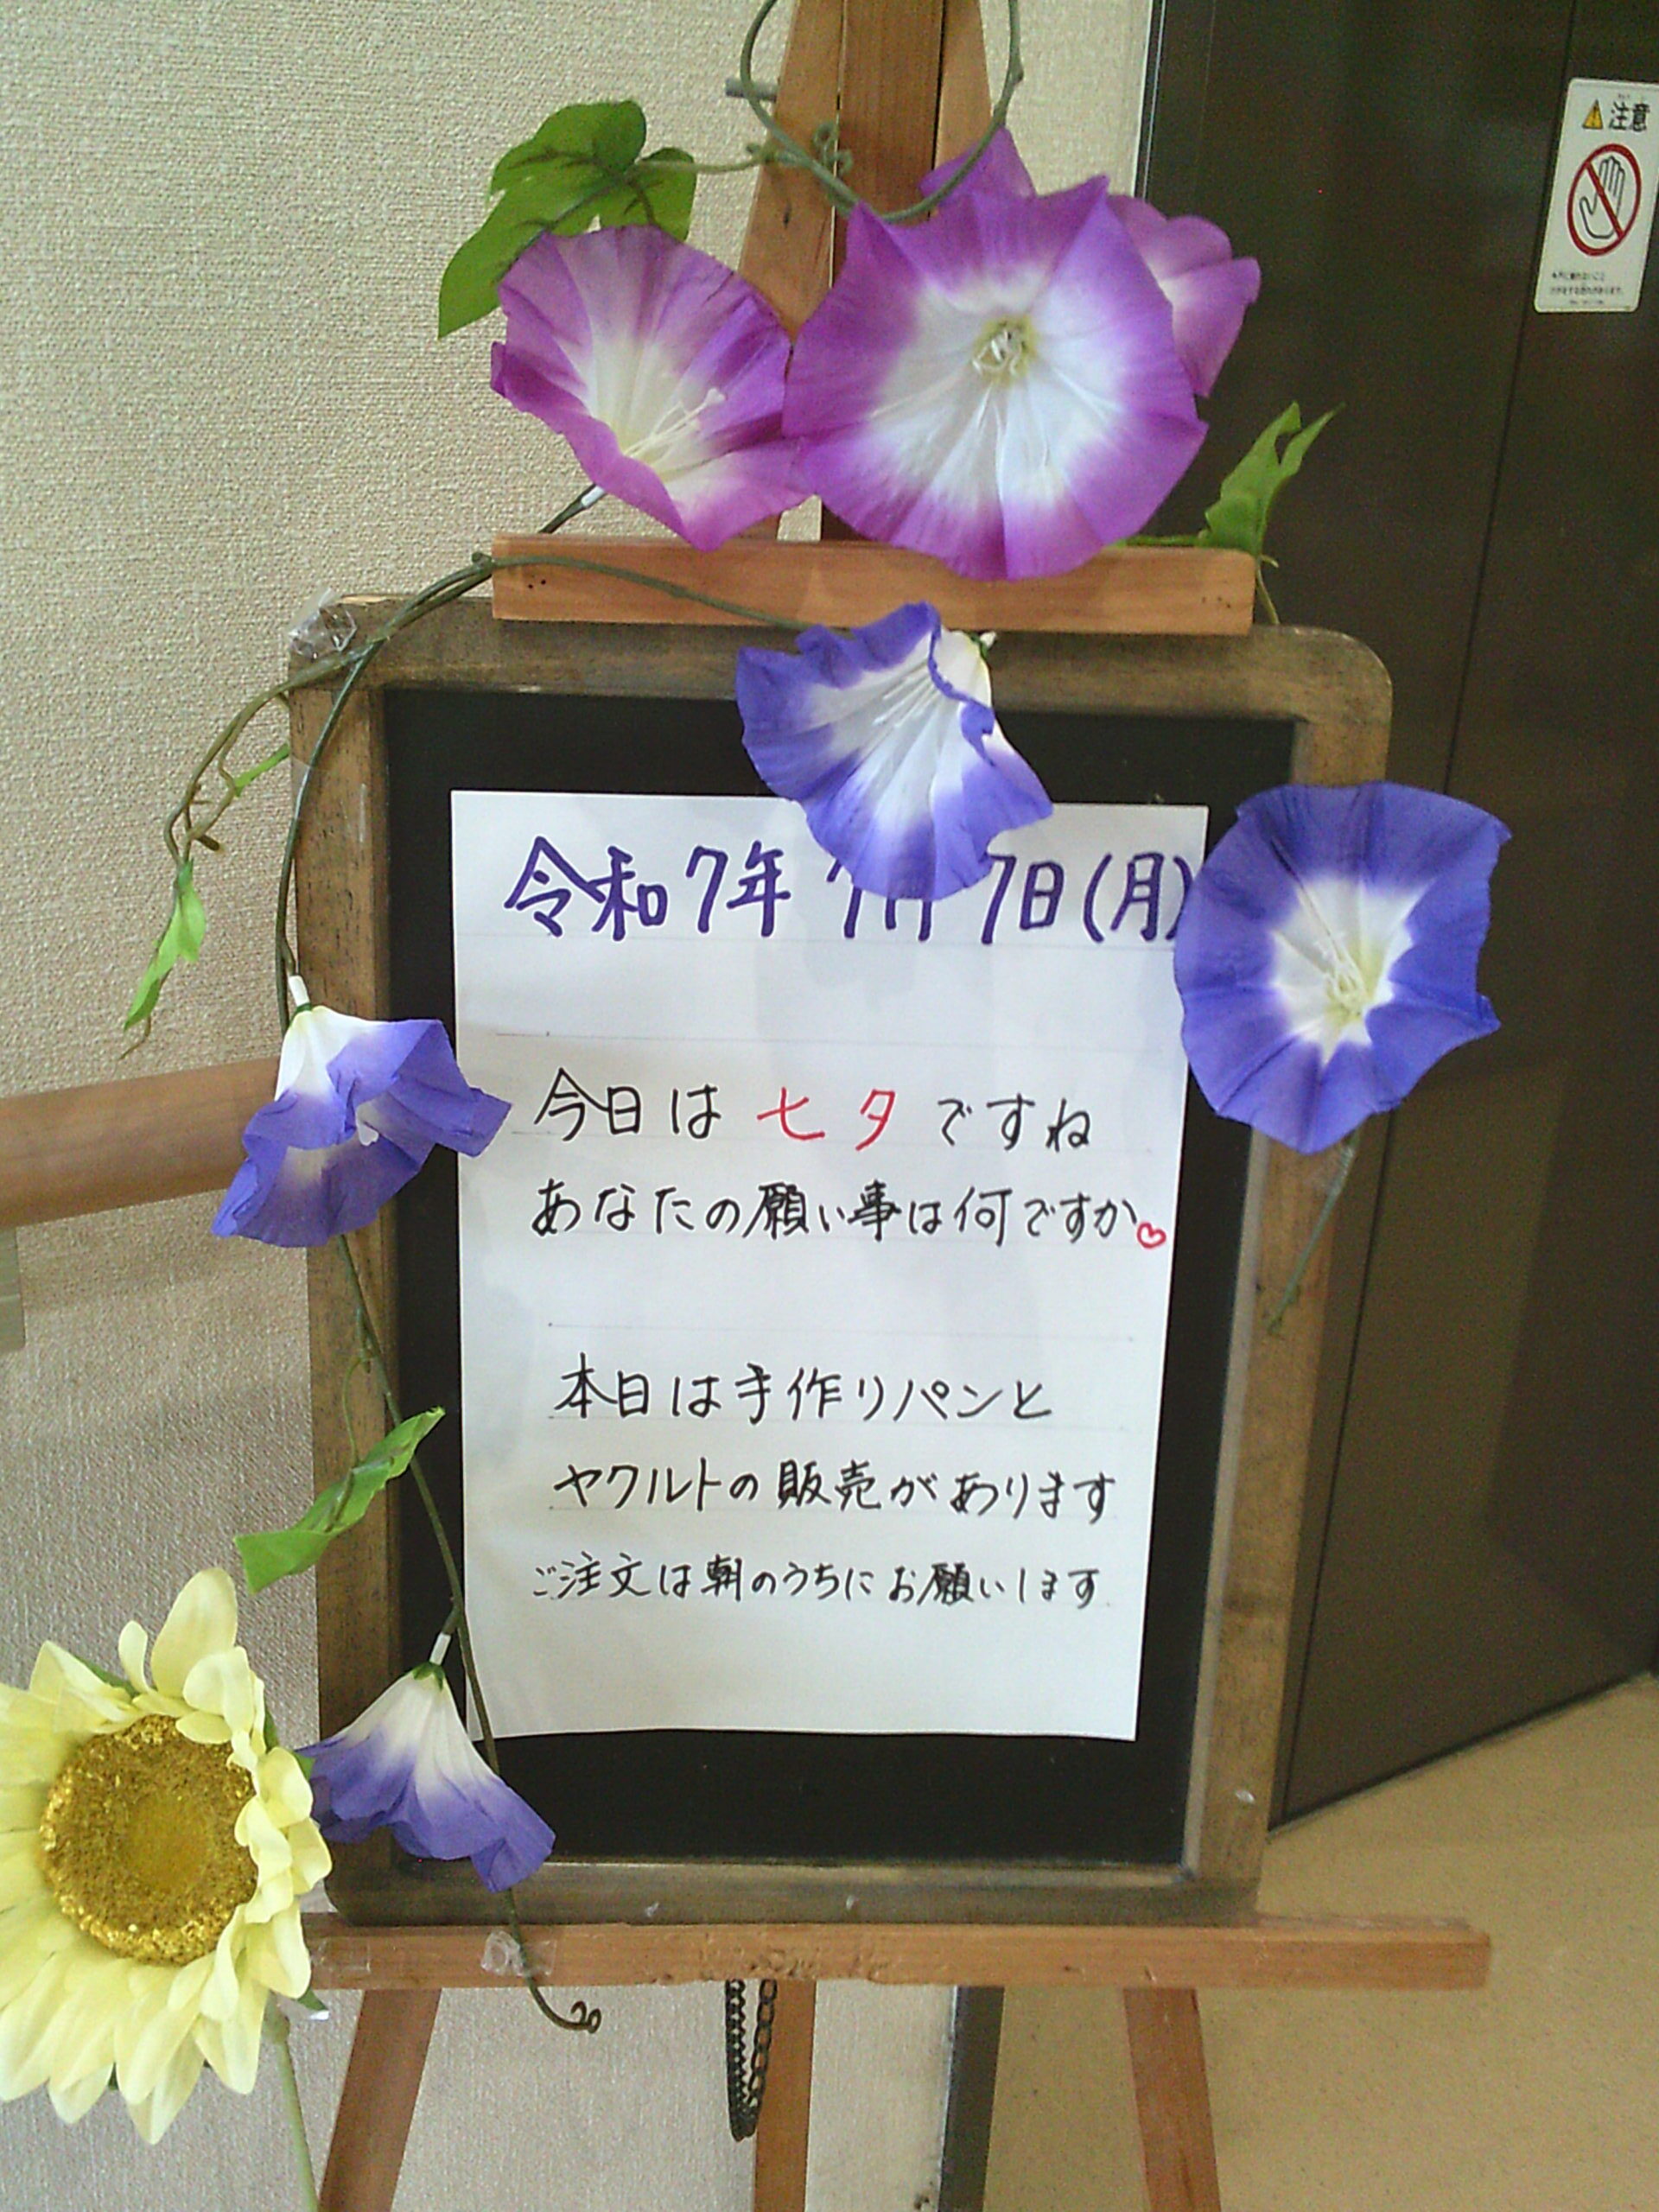 令和7年 7月 7日(月)
今日は七夕ですね
あなたの願い事は何ですか
本日は手作りパンと
ヤクルトの販売があります
ご注文は朝のうちにお願いします
注意